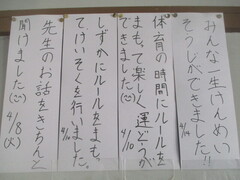 みんな一生けんめい
そうじができました!!
4/14
体育の時間にルールを
まもって楽しく運どうが
できました(^^)
4/10
しずかにルールをまもっ
てけいそくを行いました。
4/10
先生のお話をきちんと
聞けました(^^)
4/8(火)